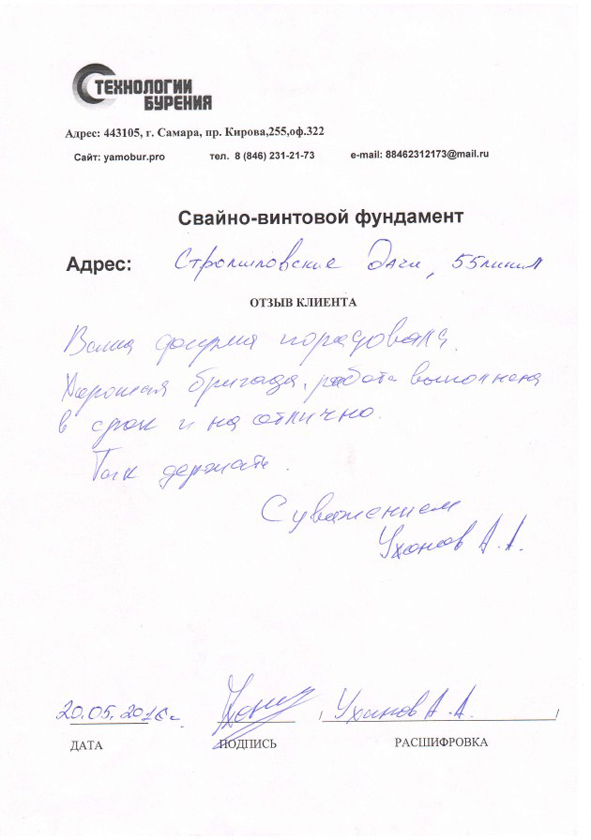 ТЕХНОЛОГИИ
БУРЕНИЯ
Адрес: 443105, г. Самара, пр. Кирова,255,оф.322
Сайт: yamobur.pro тел. 8 (846) 231-21-73 e-mail: 88462312173@mail.ru
Свайно-винтовой фундамент
Адрес: Дачи, 55линия
ОТЗЫВ КЛИЕНТА
Ваша фирма порадовала.
Хорошая бригада, работа выполнена
в срок и на отлично.
Так держать.
С уважением
А.А.
20.05.2016г. / А.А. /
ДАТА ПОДПИСЬ РАСШИФРОВКА